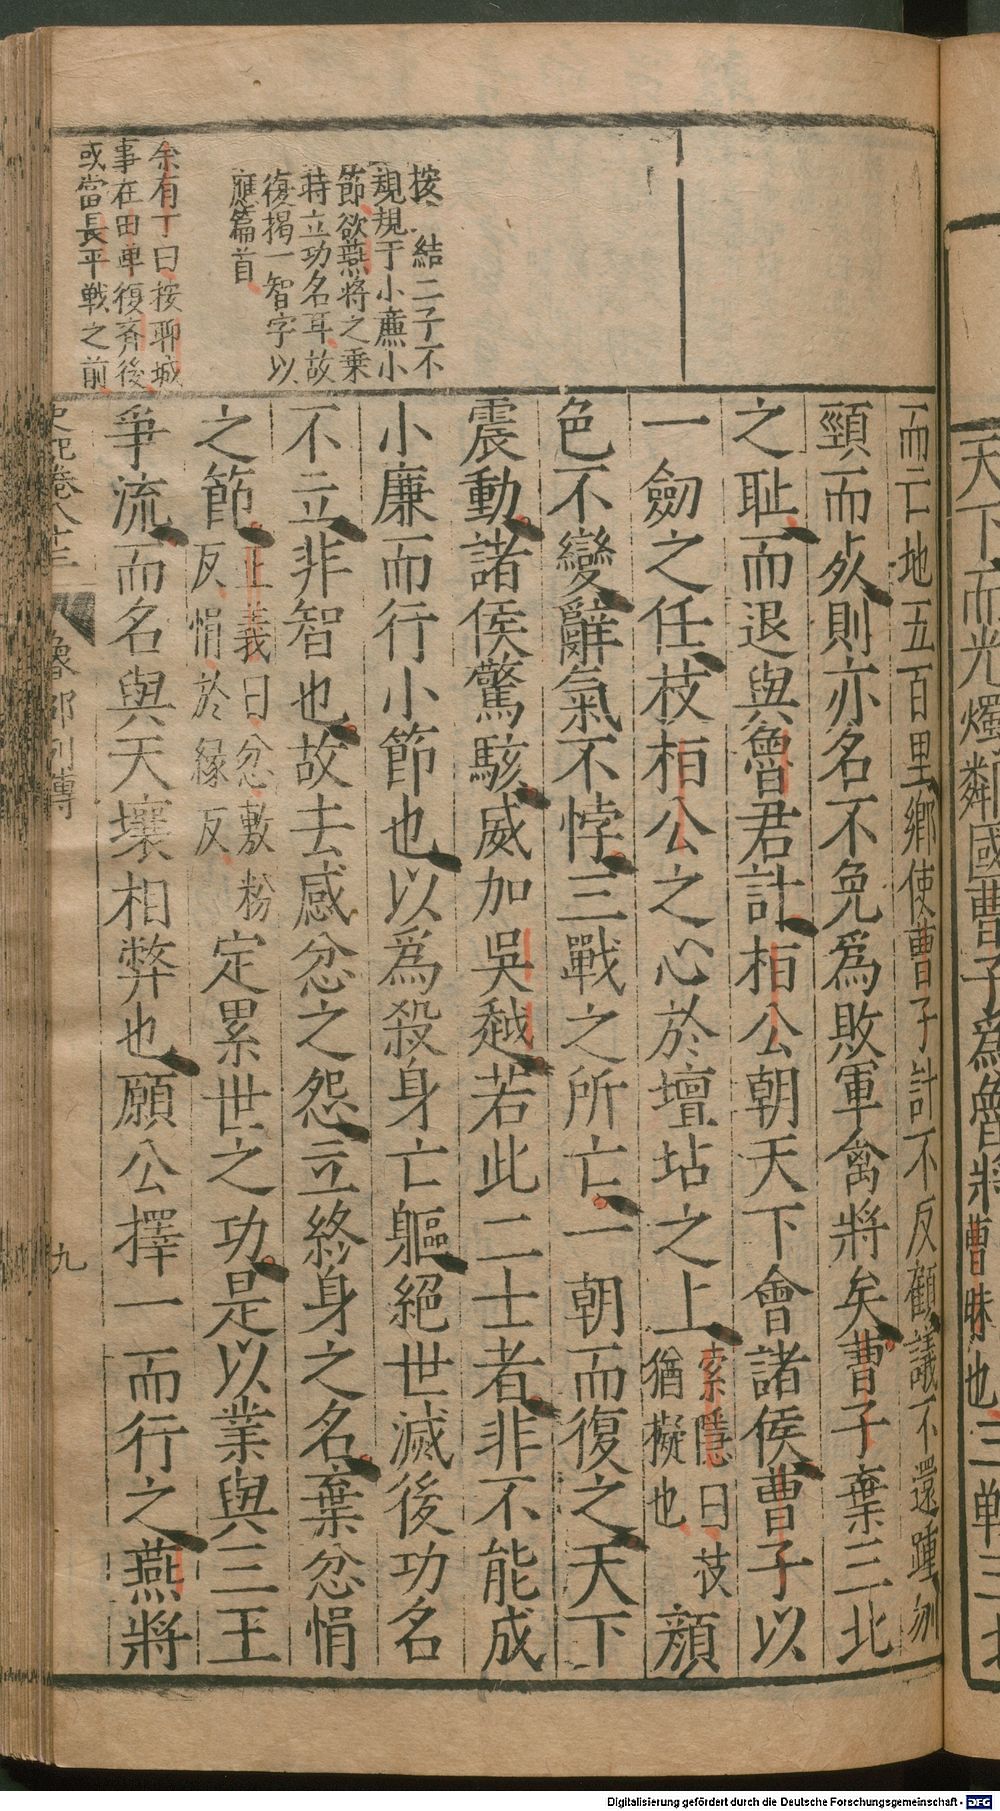 天下而光燭鄰國曹子爲魯將曹昧也三戰三北
而亡地五百里鄉使曹子計不反顧議不還踵刎
頸而死則亦名不免爲敗軍禽將矣曹子棄三北
之恥而退與魯君計桓公朝天下會諸侯曹子以
一劒之任枝桓公之心於壇坫之上索隱曰枝猶擬也顔
色不變辭氣不悖三戰之所亡一朝而復之天下
震動諸侯驚駭威加吳越若此二士者非不能成
小廉而行小節也以爲殺身亡軀絕世滅後功名
不立非智也故去感忿之怨立終身之名棄忿悁
之節正義曰忿敷粉反悁於緣反定累世之功是以業與三王
爭流而名與天壤相弊也願公擇一而行之燕將
史記卷八十三 魯鄒列傳
九
按 結二子不
規規于小廉小
節欲燕將之乗
時立功名耳故
復揭一智字以
應篇首
余有丁曰按聊城
事在田單復齊後
或當長平戰之前
Digitalisierung gefördert durch die Deutsche Forschungsgemeinschaft - DFG